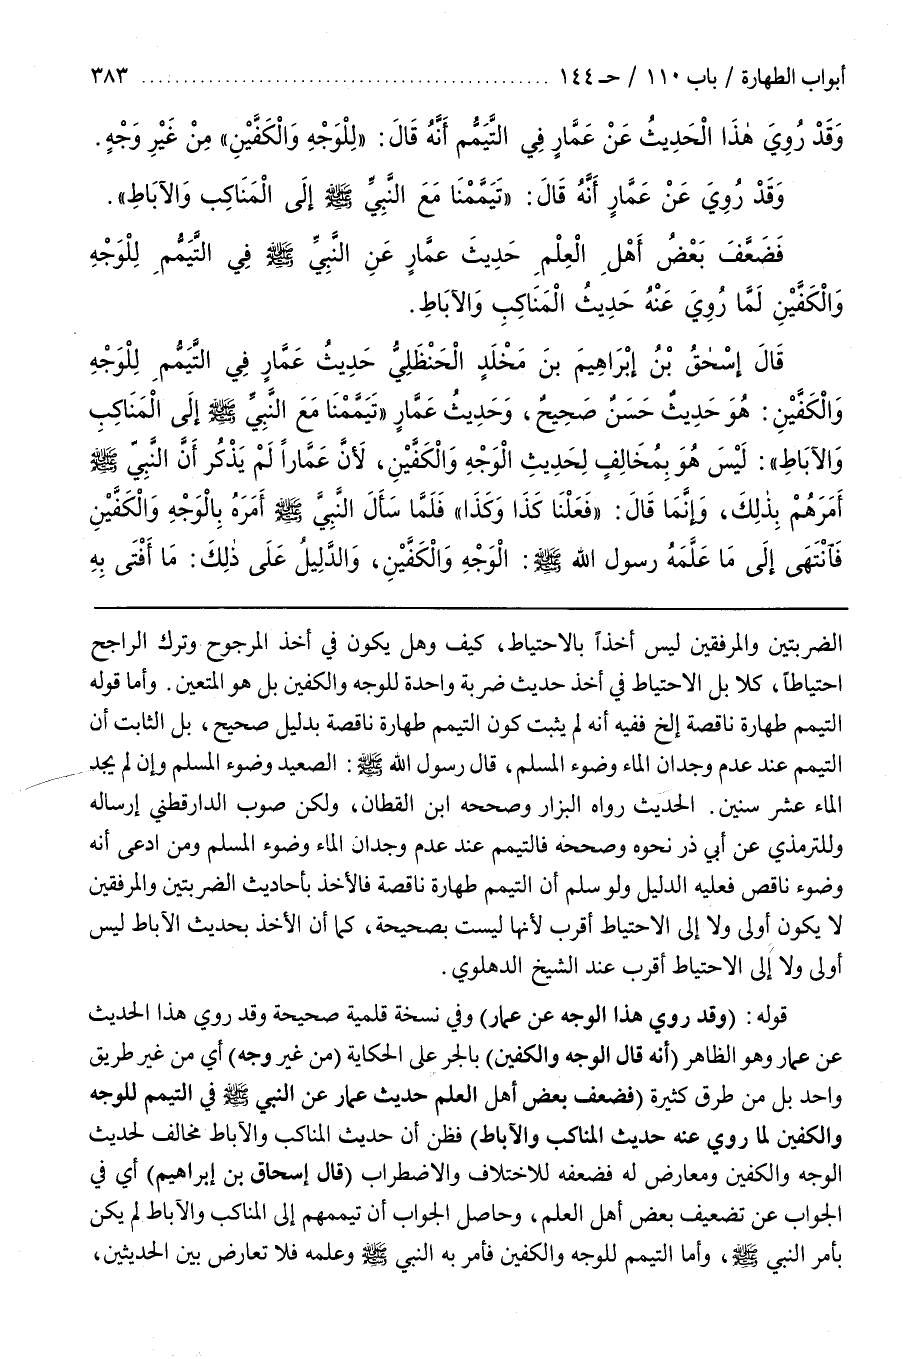 أبواب الطهارة / باب ١١٠ / حـ ١٤٤ ................................................ ٣٨٣
وَقَدْ رُوِيَ هٰذَا الْحَدِيثُ عَنْ عَمَّارٍ فِي التَّيَمُّمِ أَنَّهُ قَالَ: «لِلْوَجْهِ وَالْكَفَّيْنِ» مِنْ غَيْرِ وَجْهٍ.
وَقَدْ رُوِيَ عَنْ عَمَّارٍ أَنَّهُ قَالَ: «تَيَمَّمْنَا مَعَ النَّبِيِّ ﷺ إِلَى الْمَنَاكِبِ وَالآبَاطِ».
فَضَعَّفَ بَعْضُ أَهْلِ الْعِلْمِ حَدِيثَ عمَّارٍ عَنِ النَّبِيِّ ﷺ فِي التَّيَمُّمِ لِلْوَجْهِ
وَالْكَفَّيْنِ لَمَّا رُوِيَ عَنْهُ حَدِيثُ الْمَنَاكِبِ وَالآبَاطِ.
قَالَ إِسْحٰقُ بْنُ إِبْرَاهِيمَ بنَ مَخْلَدٍ الْحَنْظَلِيُّ حَدِيثُ عَمَّارٍ فِي التَّيَمُّمِ لِلْوَجْهِ
وَالْكَفَّيْنِ: هُوَ حَدِيثٌ حَسَنٌ صَحِيحٌ، وَحَدِيثُ عَمَّارٍ «تَيَمَّمْنَا مَعَ النَّبِيِّ ﷺ إِلَى الْمَنَاكِبِ
وَالآبَاطِ»: لَيْسَ هُوَ بِمُخَالِفٍ لِحَدِيثِ الْوَجْهِ وَالْكَفَّيْنِ، لَأنَّ عَمَّاراً لَمْ يَذْكُر أَنَّ النَّبِيّ ﷺ
أَمَرَهُمْ بِذٰلِكَ، وَإِنَّمَا قَالَ: «فَعَلْنَا كَذَا وَكَذَا» فَلَمَّا سَأَلَ النَّبِيَّ ﷺ أَمَرَهُ بِالْوَجْهِ وَالْكَفَّيْنِ
فَٱنْتَهَى إِلَى مَا عَلَّمَهُ رسول الله ﷺ: الْوَجْهِ وَالْكَفَّيْنِ، وَالدَّلِيلُ عَلَى ذٰلِكَ: مَا أَفْتَى بِهِ
الضربتين والمرفقين ليس أخذاً بالاحتياط، كيف وهل يكون في أخذ المرجوح وترك الراجح
احتياطاً، كلا بل الاحتياط في أخذ حديث ضربة واحدة للوجه والكفين بل هو المتعين. وأما قوله
التيمم طهارة ناقصة إلخ ففيه أنه لم يثبت كون التيمم طهارة ناقصة بدليل صحيح، بل الثابت أن
التيمم عند عدم وجدان الماء وضوء المسلم، قال رسول الله ﷺ: الصعيد وضوء المسلم وإن لم يجد
الماء عشر سنين. الحديث رواه البزار وصححه ابن القطان، ولكن صوب الدارقطني إرساله
وللترمذي عن أبي ذر نحوه وصححه فالتيمم عند عدم وجدان الماء وضوء المسلم ومن ادعى أنه
وضوء ناقص فعليه الدليل ولو سلم أن التيمم طهارة ناقصة فالأخذ بأحاديث الضربتين والمرفقين
لا يكون أولى ولا إلى الاحتياط أقرب لأنها ليست بصحيحة، كما أن الأخذ بحديث الآباط ليس
أولى ولا إلى الاحتياط أقرب عند الشيخ الدهلوي.
قوله: (وقد روي هذا الوجه عن عمار) وفي نسخة قلمية صحيحة وقد روي هذا الحديث
عن عمار وهو الظاهر (أنه قال الوجه والكفين) بالجر على الحكاية (من غير وجه) أي من غير طريق
واحد بل من طرق كثيرة (فضعف بعض أهل العلم حديث عمار عن النبي ﷺ في التيمم للوجه
والكفين لما روي عنه حديث المناكب والآباط) فظن أن حديث المناكب والآباط مخالف لحديث
الوجه والكفين ومعارض له فضعفه للاختلاف والاضطراب (قال إسحاق بن إبراهيم) أي في
الجواب عن تضعيف بعض أهل العلم، وحاصل الجواب أن تيممهم إلى المناكب والآباط لم يكن
بأمر النبي ﷺ، وأما التيمم للوجه والكفين فأمر به النبي ﷺ وعلمه فلا تعارض بين الحديثين،